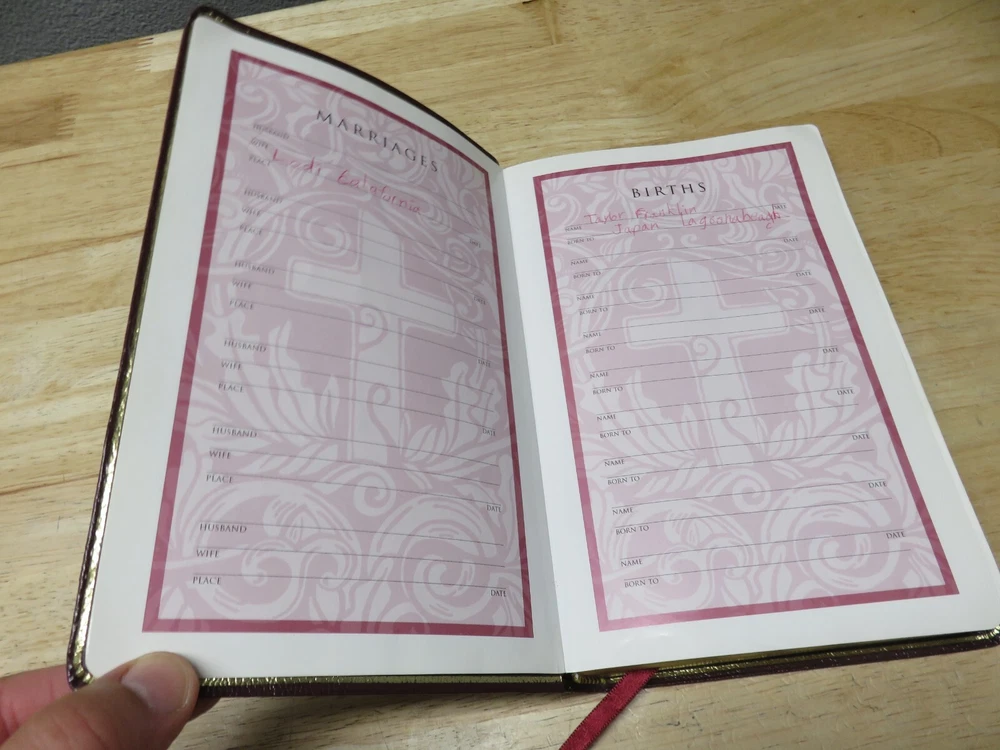 MARRIAGES
HUSBAND
WIFE
PLACE Lodi Calafornia
DATE
HUSBAND
WIFE
PLACE
DATE
HUSBAND
WIFE
PLACE
DATE
HUSBAND
WIFE
PLACE
DATE
HUSBAND
WIFE
PLACE
DATE
HUSBAND
WIFE
PLACE
DATE
BIRTHS
NAME Taylor Franklin DATE
BORN TO Japan
NAME DATE
BORN TO
NAME DATE
BORN TO
NAME DATE
BORN TO
NAME DATE
BORN TO
NAME DATE
BORN TO
NAME DATE
BORN TO
NAME DATE
BORN TO
NAME DATE
BORN TO